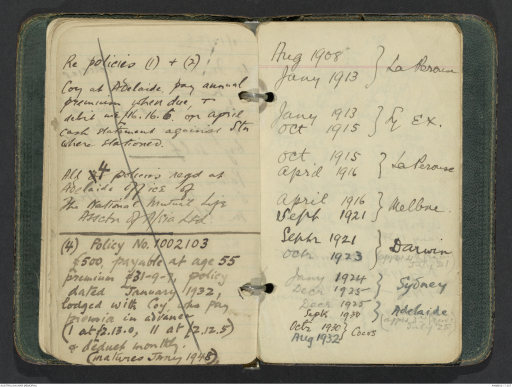 Re policies (1) + (2):
Coy at Adelaide pay annual
premium when due, +
debit me 16.16.6. on April
cash statement against Stn
where stationed.
All 4 policies regd at
Adelaide office of
The National Mutual Life
Assctn of A/sia Ltd
(4) Policy No. 1002103
£500, payable at age 55
premium £31-9-2, policy
dated January 1932
lodged with Coy who pay
premia in advance
(1 at £2.13.0, 11 at £2.12.5)
& deduct monthly.
(matures Jany 1948)
Aug 1908
Jany 1913 } La Perouse
Jany 1913
Oct 1915 } Ex.
Oct 1915
April 1916 } La Perouse
April 1916
Sept 1921 } Melbne.
Septr 1921
Octr 1923 } Darwin
Jany 1924
Decr 1925 } Sydney
Decr 1925
Septr 1930 } Adelaide
Octr 1930
Aug 1932 } Cocos